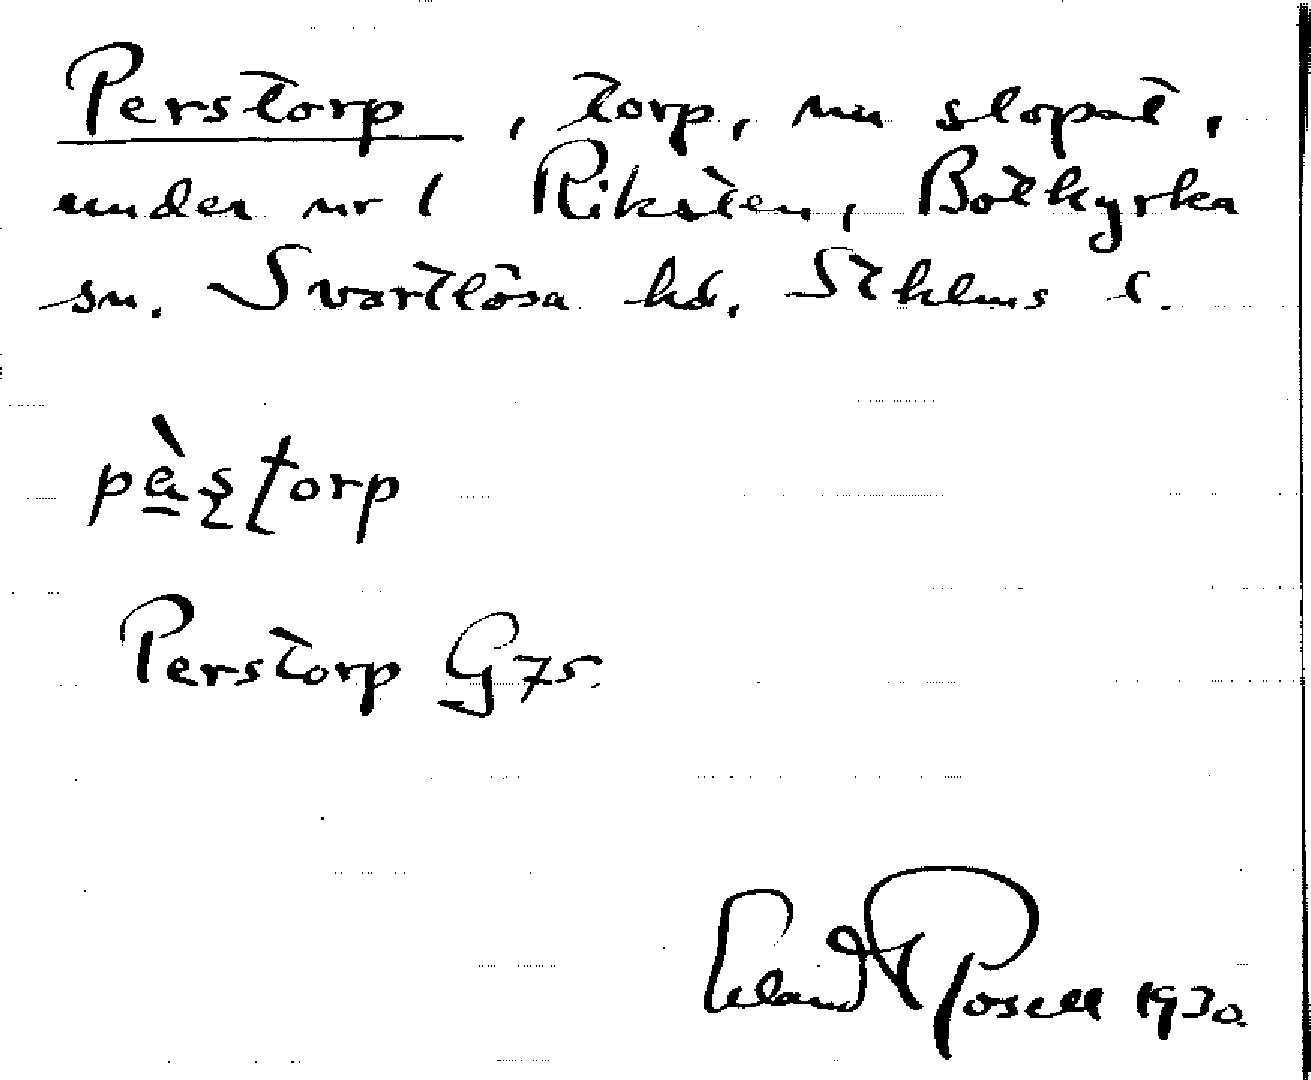 Perstorp, torp, nu slopat,
under nr 1 Riksten, Botkyrka
sn. Svartlösa hd. Sthlms l.
pàstorp
Perstorp G 75.
Erland Rosell 1930